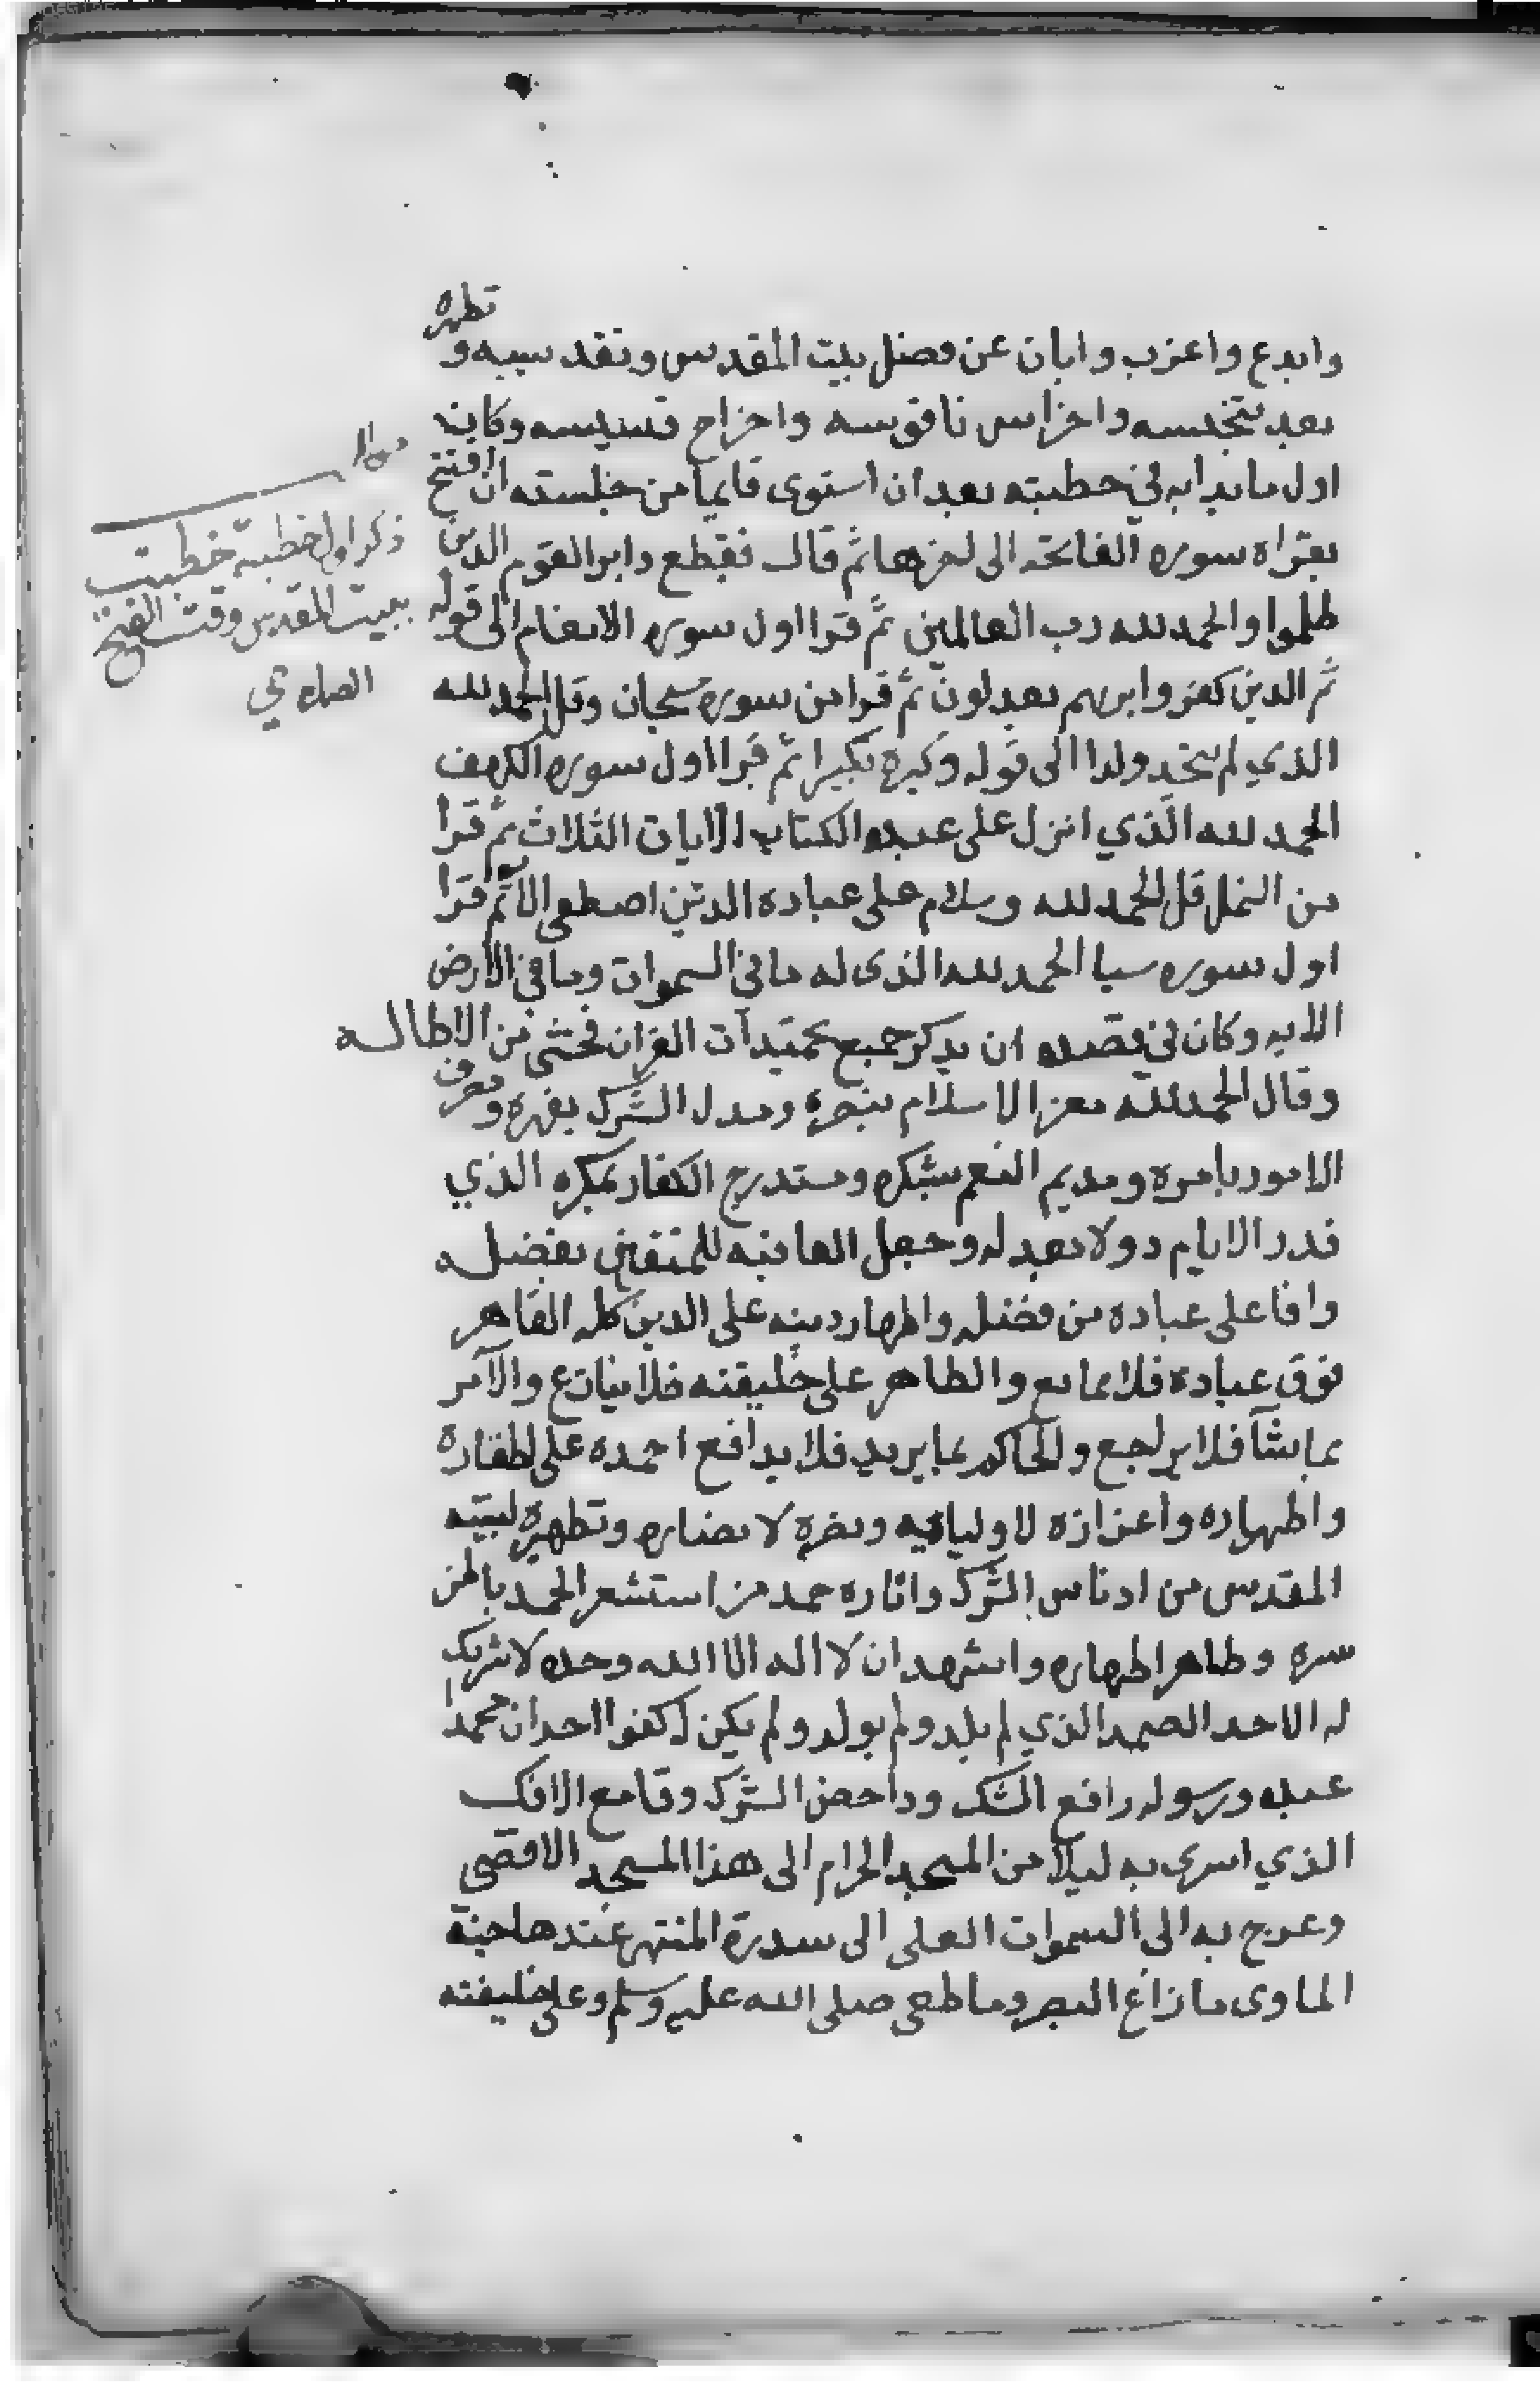 وابدع واعزب وابان عن فضل بيت المقدس وتقديسه وتطهيره
بعد تنجيسه واخراس ناقوسه واخراج قسيسه وكان
اول ما بدا به في خطبته بعد ان استوى قايما من جلسته ان افتتح
بقراه سوره الفاتحه الى اخرها ثم قال فقطع دابر القوم الدين
ظلموا والحمد لله رب العالمين ثم قرا اول سوره الانعام الى قوله
ثم الدين كفروا بربهم يعدلون ثم قرا من سوره سبحان وقل الحمد لله
الذي لم يتخد ولدا الى قوله وكبره تكبيرا ثم قرا اول سوره الكهف
الحمد لله الذي انزل على عبده الكتاب الايات الثلاث ثم قرا
من النمل قل الحمد لله وسلام على عباده الدين اصطفى الايه ثم قرا
اول سوره سبا الحمد لله الذى له ما في السموات وما في الارض
الايه وكان في قصده ان يدكر جميع تحميدات القران فخشى من الاطاله
وقال الحمد لله معز الاسلام بنصره ومدل الشرك بقهره ومصرف
الامور بامره ومديم النعم بشكره ومستدرج الكفار بمكره الذي
قدر الايام دولا بعدله وجعل العاقبه للمتقين بفضله
وافا على عباده من فضله واظهار دينه على الدين كله القاهر
فوق عباده فلا يمانع والظاهر على خليقته فلا ينازع والآمر
بما يشآ فلا يراجع والحاكم بما يريد فلا يدافع احمده على اظفاره
واظهاره واعزازه لاوليايه ونصره لانصاره وتطهيره لبيته
المقدس من ادناس الشرك واثاره حمد من استشعر الحمد باطن
سره وظاهر اظهاره واشهد ان لا اله الا الله وحده لا شريك
له الاحد الصمد الذي لم يلد ولم يولد ولم يكن له كفوا احد ان محمدا
عبده ورسوله رافع الشك وداحض الشرك وقامع الافك
الذي اسرى به ليلا من المسجد الحرام الى هذا المسجد الاقصى
وعرج به الى السموات العلى الى سدرة المنتهى عندها جنة
الماوى ما زاغ البصر وما طغى صلى الله عليه وسلم وعلى خليفته
ذكر اول خطبة خطبت
ببيت المقدس وقت الفتح
الصلاحي